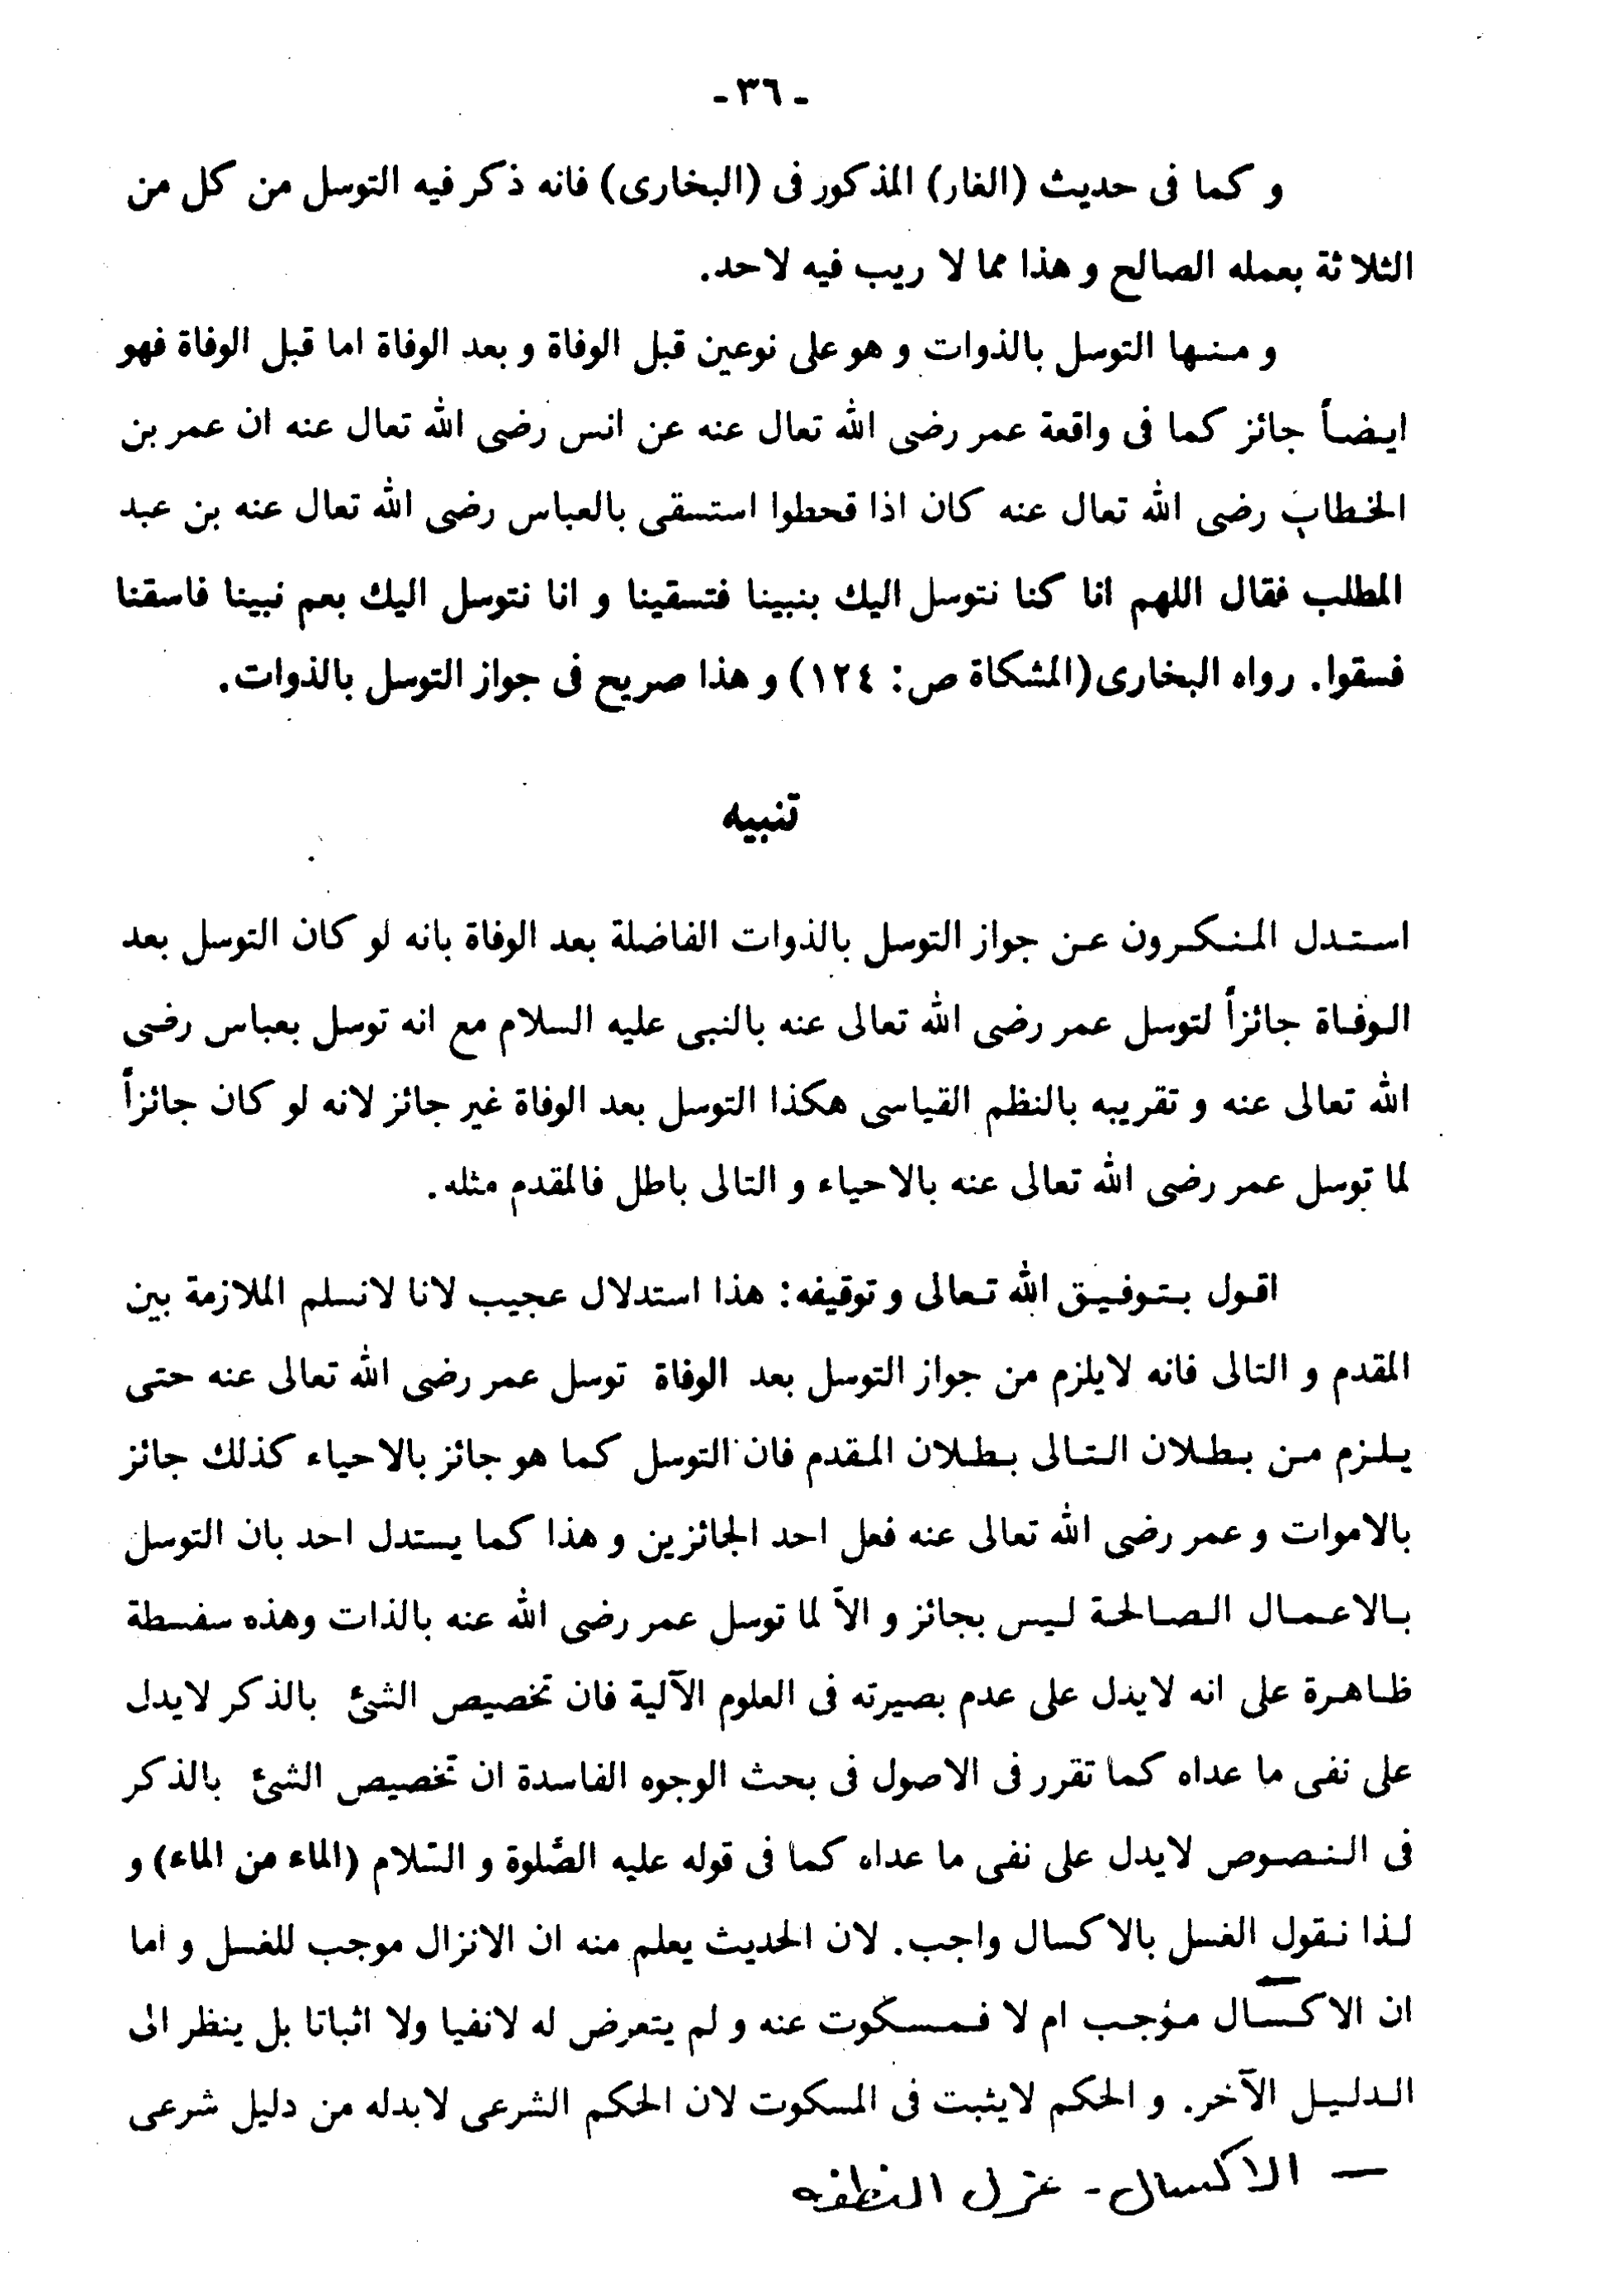 - ٣٦ -
و كما فى حديث (الغار) المذكور فى (البخارى) فانه ذكر فيه التوسل من كل من
الثلاثة بعمله الصالح و هذا مما لا ريب فيه لاحد.
و منها التوسل بالذوات و هو على نوعين قبل الوفاة و بعد الوفاة اما قبل الوفاة فهو
ايضاً جائز كما فى واقعة عمر رضى الله تعال عنه عن انس رضى الله تعال عنه ان عمر بن
الخطاب رضى الله تعال عنه كان اذا قحطوا استسقى بالعباس رضى الله تعال عنه بن عبد
المطلب فقال اللهم انا كنا نتوسل اليك بنبينا فتسقينا و انا نتوسل اليك بعم نبينا فاسقنا
فسقوا. رواه البخارى(المشكاة ص: ١٢٤) و هذا صريح فى جواز التوسل بالذوات.
تنبيه
استدل المنكرون عن جواز التوسل بالذوات الفاضلة بعد الوفاة بانه لو كان التوسل بعد
الوفاة جائزاً لتوسل عمر رضى الله تعالى عنه بالنبى عليه السلام مع انه توسل بعباس رضى
الله تعالى عنه و تقريبه بالنظم القياسى هكذا التوسل بعد الوفاة غير جائز لانه لو كان جائزاً
لما توسل عمر رضى الله تعالى عنه بالاحياء و التالى باطل فالمقدم مثله.
اقول بتوفيق الله تعالى و توقيفه: هذا استدلال عجيب لانا لانسلم الملازمة بين
المقدم و التالى فانه لايلزم من جواز التوسل بعد الوفاة توسل عمر رضى الله تعالى عنه حتى
يلزم من بطلان التالى بطلان المقدم فان التوسل كما هو جائز بالاحياء كذلك جائز
بالاموات و عمر رضى الله تعالى عنه فعل احد الجائزين و هذا كما يستدل احد بان التوسل
بالاعمال الصالحة ليس بجائز و الاّ لما توسل عمر رضى الله عنه بالذات وهذه سفسطة
ظاهرة على انه لايدل على عدم بصيرته فى العلوم الآلية فان تخصيص الشئ بالذكر لايدل
على نفى ما عداه كما تقرر فى الاصول فى بحث الوجوه الفاسدة ان تخصيص الشئ بالذكر
فى النصوص لايدل على نفى ما عداه كما فى قوله عليه الصّلوة و السّلام (الماء من الماء) و
لذا نقول الغسل بالاكسال واجب. لان الحديث يعلم منه ان الانزال موجب للغسل و اما
ان الاكسال موجب ام لا فمسكوت عنه و لم يتعرض له لانفيا ولا اثباتا بل ينظر الى
الدليل الآخر. و الحكم لايثبت فى المسكوت لان الحكم الشرعى لابدله من دليل شرعى
— الاكسال - عزل النطفه